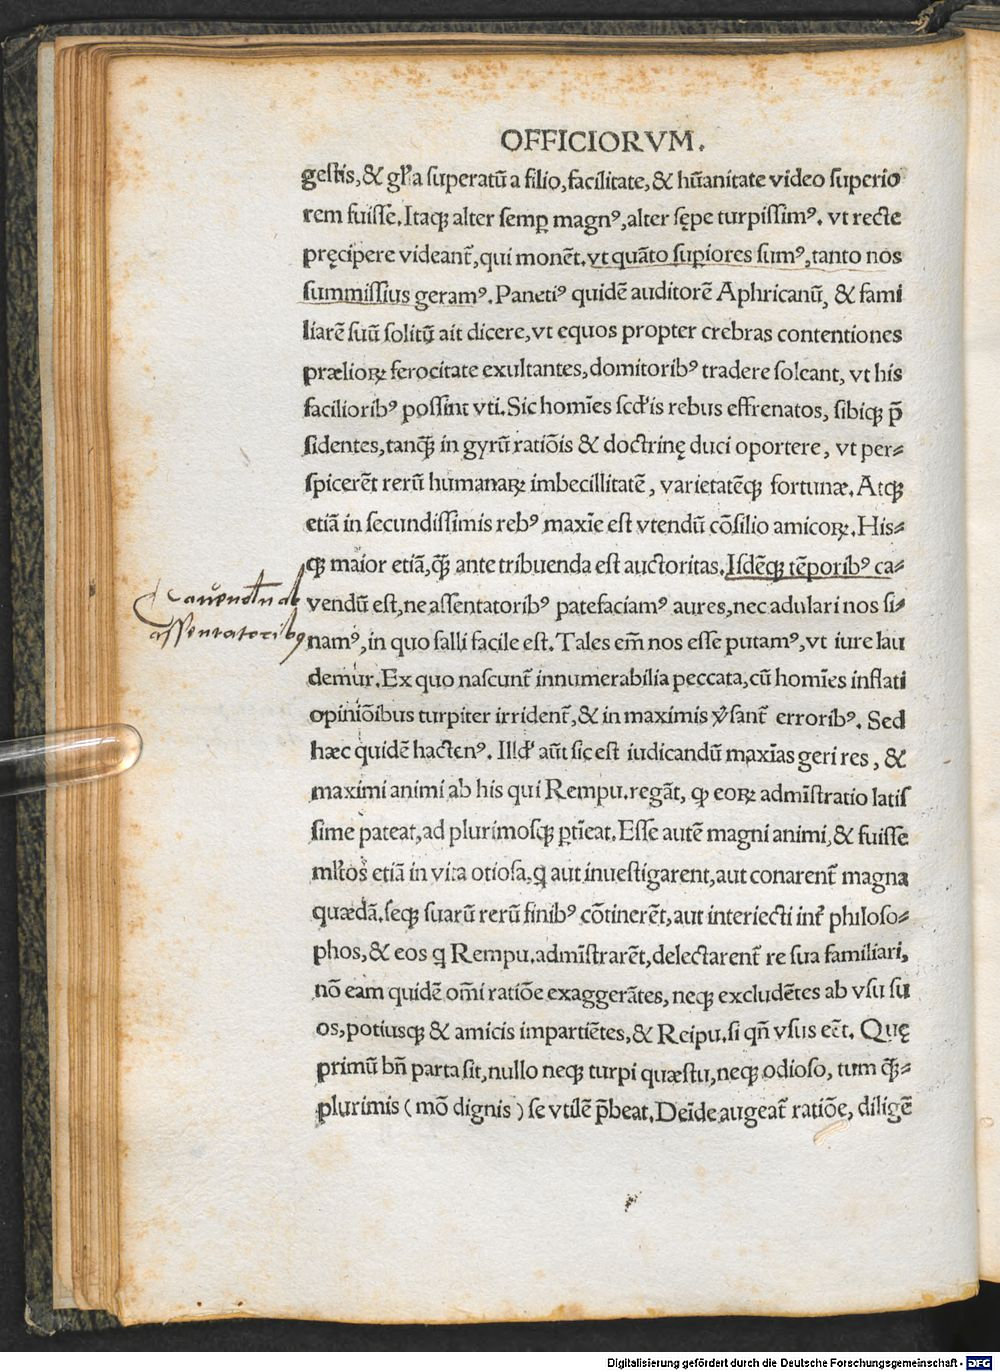 OFFICIORVM.
gestis, & gl̃a superatũ a filio, facilitate, & hũanitate video superio
rem fuisse. Itaqꝫ alter semꝑ magnꝰ, alter sępe turpissimꝰ. vt recte
pręcipere videant̃, qui monẽt. vt quãto suꝑiores sumꝰ, tanto nos
summissius geramꝰ. Panetiꝰ quidẽ auditorẽ Aphricanũ, & fami
liarẽ suũ solitũ ait dicere, vt equos propter crebras contentiones
præliorꝝ ferocitate exultantes, domitoribꝰ tradere soleant, vt his
facilioribꝰ possint vti. Sic homĩes scđis rebus effrenatos, sibiqꝫ p̃
sidentes, tanqꝫ̃ in gyrũ ratiõis & doctrinę duci oportere, vt per⸗
spicerẽt rerũ humanarꝝ imbecillitatẽ, varietatẽqꝫ fortunæ. Atqꝫ
etiã in secundissimis rebꝰ maxĩe est vtendũ cõsilio amicorꝝ. His⸗
qꝫ maior etiã, qꝫ̃ ante tribuenda est auctoritas. Isdẽqꝫ tẽporibꝰ ca⸗
vendũ est, ne assentatoribꝰ patefaciamꝰ aures, nec adulari nos si⸗
namꝰ, in quo falli facile est. Tales em̃ nos esse putamꝰ, vt iure lau
demur. Ex quo nascunt̃ innumerabilia peccata, cũ homĩes inflati
opiniõibus turpiter irrident̃, & in maximis v̾sant̃ erroribꝰ. Sed
hæc quidẽ hactenꝰ. Illđ aũt sic est iudicandũ maxĩas geri res, &
maximi animi ab his qui Rempu. regãt, ꝙ eorꝝ admĩstratio latis
sime pateat, ad plurimosqꝫ ꝑtĩeat. Esse autẽ magni animi, & fuisse
ml̃tos etiã in vita otiosa, q̃ aut inuestigarent, aut conarent̃ magna
quædã. seqꝫ suarũ rerũ finibꝰ cõtinerẽt, aut interiecti int̃ philoso⸗
phos, & eos q̃ Rempu. admĩstrarẽt, delectarent̃ re sua familiari,
nõ eam quidẽ om̃i ratiõe exaggerãtes, neqꝫ excludẽtes ab vsu su
os, potiusqꝫ & amicis impartiẽtes, & Reipu. si qñ vsus eẽt. Quę
primũ bñ parta sit, nullo neqꝫ turpi quæstu, neqꝫ odioso, tum qꝫ̃⸗
plurimis (mõ dignis) se vtilẽ p̃beat. Deĩde augeat̃ ratiõe, diligẽ
Cavendũ ab
assentatoribꝰ
Digitalisierung gefördert durch die Deutsche Forschungsgemeinschaft - DFG